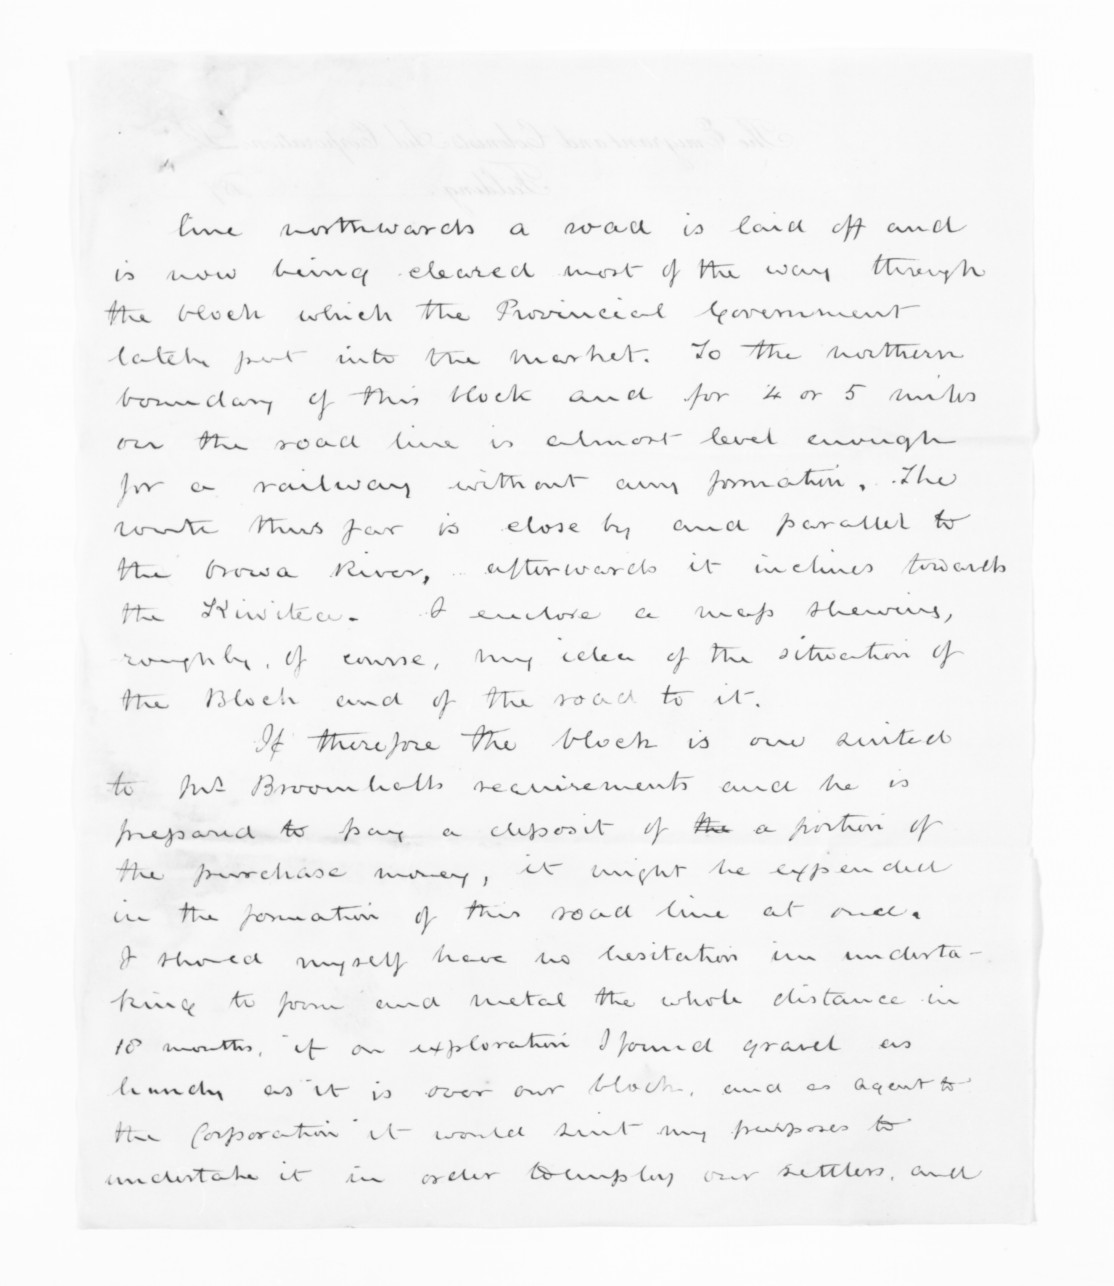 line northwards a road is laid off and
is now being cleared most of the way through
the block which the Provincial Government
lately put into the market. To the northern
boundary of this block and for 4 or 5 miles
on the road line is almost level enough
for a railway without any formation. The
route thus far is close by and parallel to
the Orowa River, afterwards it inclines towards
the Kiwitea. I enclose a map shewing,
roughly, of course, my idea of the situation of
the Block and of the road to it.
If therefore the block is one suited
to Mr Broomhalls requirements and he is
prepared to pay a deposit of the a portion of
the purchase money, it might be expended
in the formation of this road line at once.
I should myself have no hesitation in underta-
king to form and metal the whole distance in
18 months, if on exploration I found gravel as
handy as it is over our block, and as agent to
the Corporation it would suit my purposes to
undertake it in order to employ our settlers, and